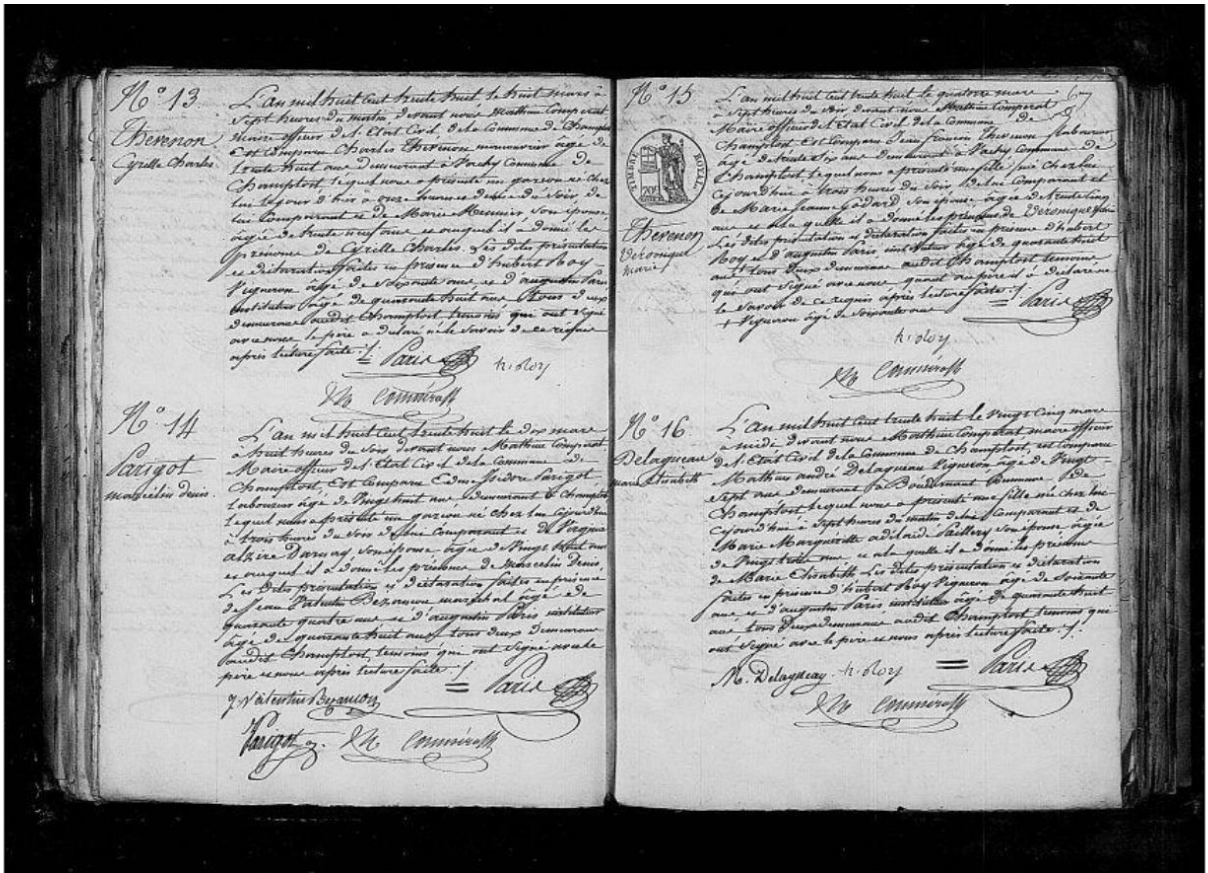 N° 13.
Thevenon
Cyrille Charles
L'an mil huit cent trente huit le huit mars à
sept heures du matin devant nous Mathieu Comperat
maire officier de l'Etat Civil de la Commune de Champlost
Est Comparu Charles Thevenon manouvrier âgé de
trente huit ans demeurant à Vachy Commune de
Champlost, lequel nous a présenté un garçon né chez
lui le jour d'hier à onze heures et demie du soir de
lui Comparant et de Marie Meunier, son épouse
âgée de trente neuf ans et auquel il a donné les
prénoms de Cyrille Charles. Les dites présentation
et déclaration faites en présence d'hubert Roy
Vigneron âgé de soixante ans et d'augustin Paris
instituteur âgé de quarante huit ans tous deux
demeurans audit Champlost temoins qui ont signé
avec nous le père a déclaré ne le savoir de ce requis
après lecture faite ./.
Paris
h. Roy
N° 14
Parigot
marcelin denis.
L'an mil huit cent trente huit le dix mars
à huit heures du soir devant nous Mathieu Comperat
Maire officier de l'Etat Civil de la Commune de
Champlost, Est Comparu Edme Isidore Parigot
laboureur âgé de vingt huit ans demeurant à Champlost
lequel nous a présenté un garçon né chez lui cejourd'hui
à trois heures du soir de lui Comparant et de
alzire son épouse âgée de vingt huit ans
et auquel il a donné les prénoms de marcelin Denis.
Les dites présentation et déclaration faites en présence
de Jean Valentin Bezancon maréchal âgé de
quarante quatre ans et d'augustin Paris instituteur
âgé de quarante huit ans tous deux demeurans
audit Champlost, temoins qui ont signé avec le
père et nous après lecture faite ./.
J. Valentin Bezancon
Paris
Parigot
N° 15
TIMBRE ROYAL
Thevenon
Veronique
marie
L'an mil huit cent trente huit le quatorze mars
à sept heures du soir devant nous Mathieu Comperat
Maire officier de l'Etat Civil de la Commune de
Champlost Est Comparu Jean françois Thevenon laboureur
âgé de trente six ans demeurant à Vachy Commune de
Champlost lequel nous a présenté une fille née chez lui
cejourd'hui à trois heures du soir, de lui Comparant et
de Marie Jeanne Godard son épouse âgée de trente cinq
ans et à la quelle il a donné les prénoms de Veronique Marie
Les dites présentation et déclaration faites en présence d'hubert
Roy + et d'augustin Paris, instituteur âgé de quarante huit
ans tous deux demeurans audit Champlost temoins
qui ont signé avec nous quant au père il a déclaré ne
le savoir de ce requis après lecture faite ./.
+ Vigneron âgé de soixante ans
Paris
h. Roy
N° 16
Delagneau
marie Elisabeth
L'an mil huit cent trente huit le vingt cinq mars
à midi devant nous Mathieu Comperat maire officier
de l'Etat Civil de la Commune de Champlost, est comparu
Mathieu andré Delagneau Vigneron âgé de vingt
sept ans demeurant à Boudernant Commune de
Champlost lequel nous a présenté une fille née chez lui
cejourd'hui à sept heures du matin de lui Comparant et de
Marie Marguerite son épouse âgée
de vingt trois ans et à la quelle il a donné les prénoms
de Marie Elisabeth Les dites présentation et déclaration
faites en présence d'hubert Roy Vigneron âgé de soixante
ans et d'augustin Paris instituteur âgé de quarante huit
ans tous deux demeurans audit Champlost temoins qui
ont signé avec le père et nous après lecture faite ./.
M. Delagneau
h. Roy
Paris